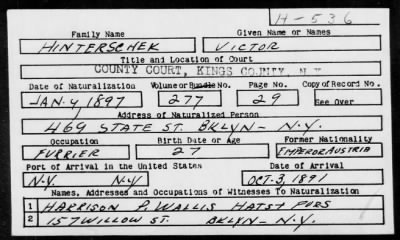 H-536
Family Name Given Name or Names
HINTERSCHEK VICTOR
Title and Location of Court
COUNTY COURT, KINGS COUNTY, N.Y.
Date of Naturalization Volume or Bundle No. Page No. Copy of Record No.
JAN. 4, 1897 277 29 See Over
Address of Naturalized Person
469 STATE ST. BKLYN - N.Y.
Occupation Birth Date or Age Former Nationality
FURRIER 27 EMPEROR AUSTRIA
Port of Arrival in the United States Date of Arrival
N.Y. N.Y. OCT. 3, 1891
Names, Addresses and Occupations of Witnesses To Naturalization
1 HARRISON P. WALLIS HATS & FURS
2 157 WILLOW ST. BKLYN - N.Y.